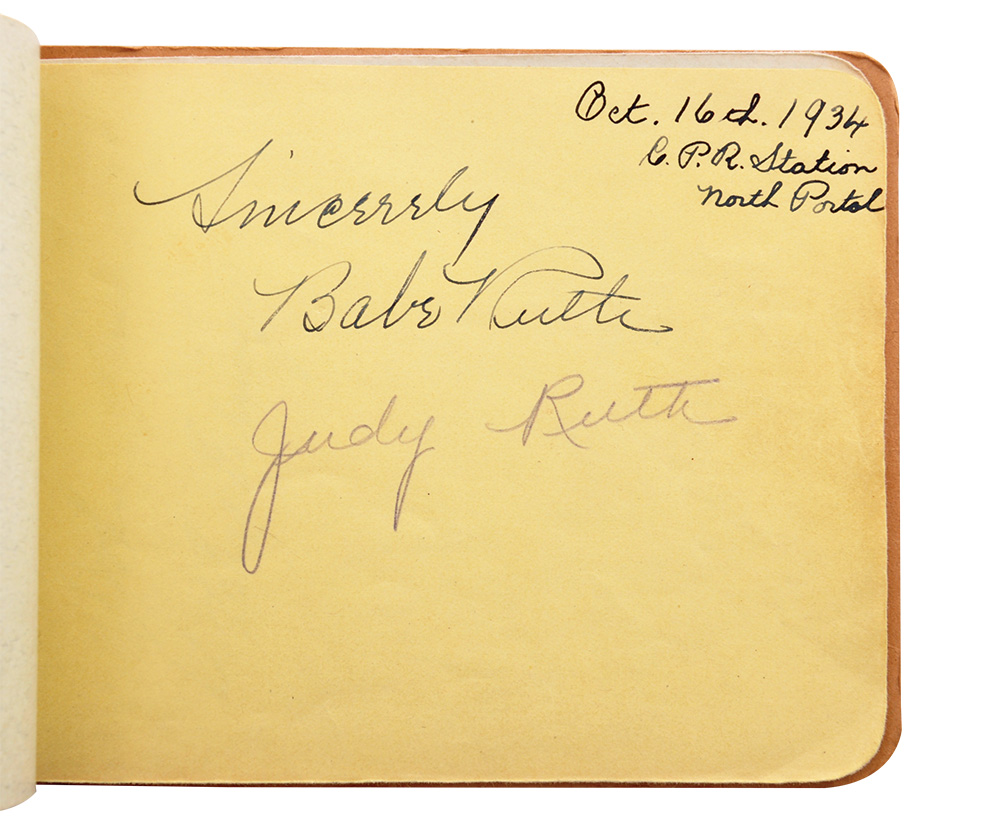 Oct. 16th. 1934
C.P.R. Station
North Portal
Sincerely
Babe Ruth
Judy Ruth